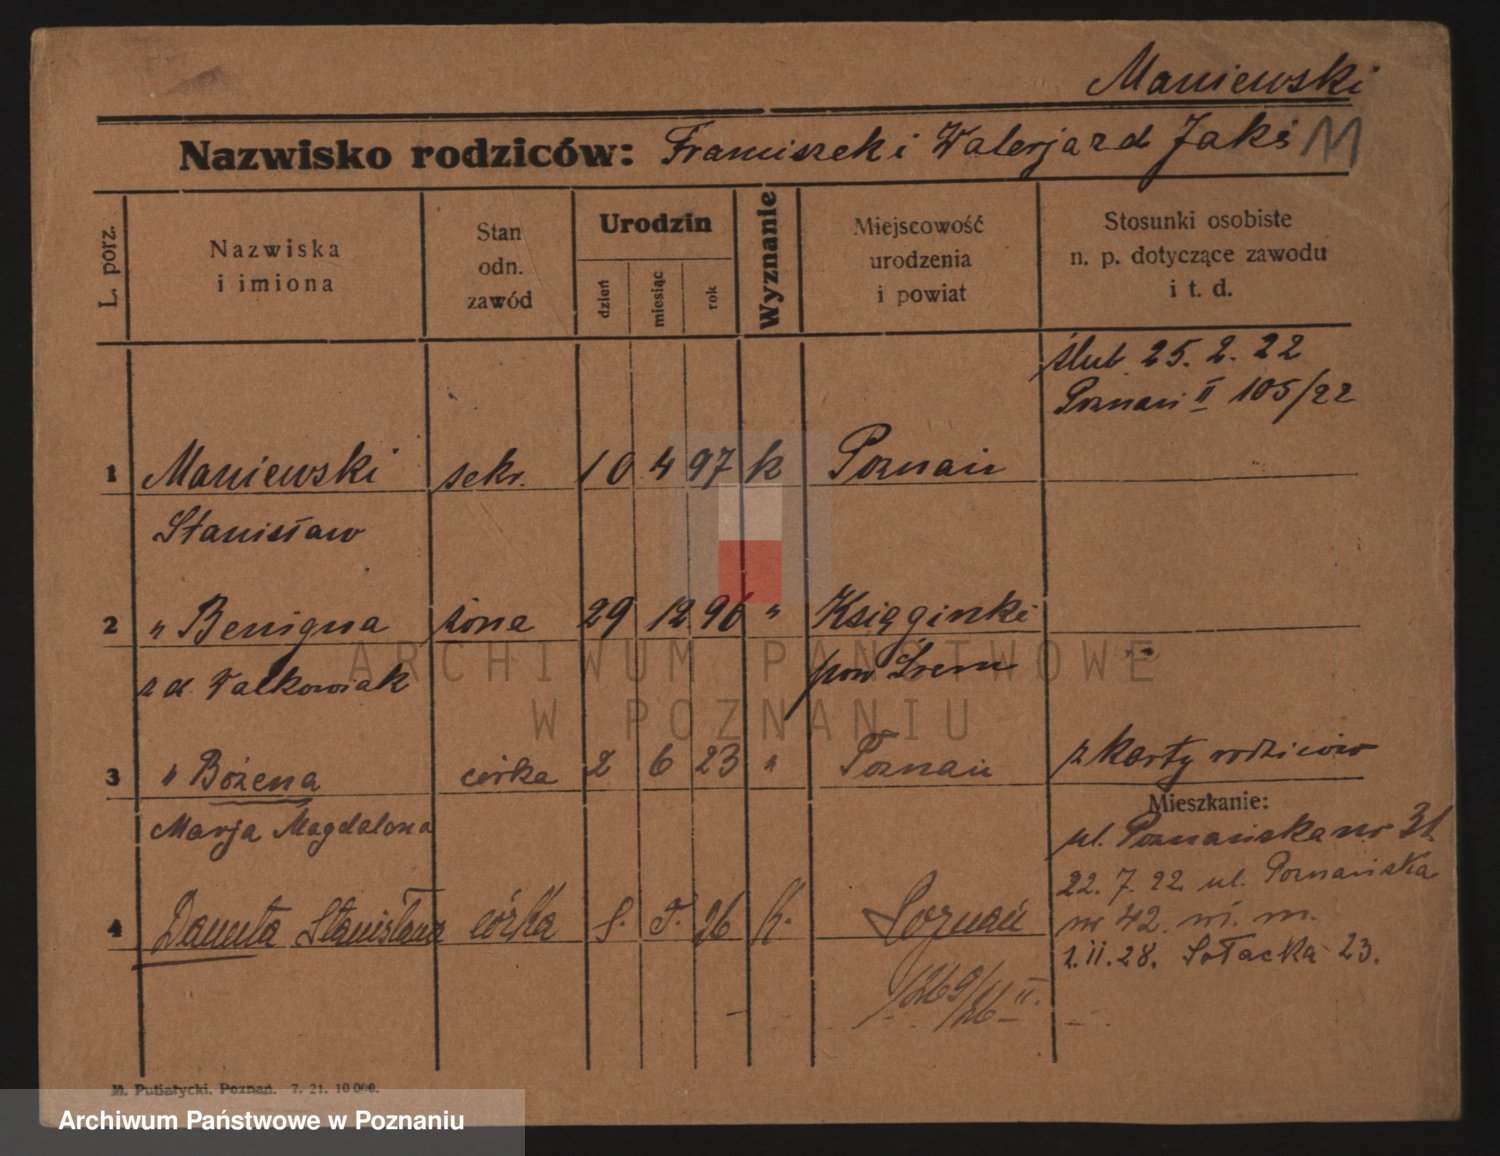 Maniewski
Nazwisko rodziców: Franciszek i Walerja z d Jakś M
L. porz.
Nazwiska
i imiona
Stan
odn.
zawód
Urodzin
dzień
miesiąc
rok
Wyznanie
Miejscowość
urodzenia
i powiat
Stosunki osobiste
n. p. dotyczące zawodu
i t. d.
ślub 25. 2. 22
Poznań II 105/22
1 Maniewski sekr. 10 4 97 k Poznań
Stanisław
2 " Benigna żona 29 12 96 " Księginki
z d. Walkowiak pow Śrem
3 " Bożena córka 2 6 23 " Poznań z karty rodziców
Marja Magdalena
Mieszkanie:
ul. Poznańska nr 31
22. 7. 22 ul. Poznańska
4 Danuta Stanisława córka 26 K. Poznań nr 42. m.
1. II. 28. Sołacka 23.
1269/26 II.
M. Putiatycki, Poznań. 7. 21. 10 000.
ARCHIWUM PAŃSTWOWE
W POZNANIU
Archiwum Państwowe w Poznaniu